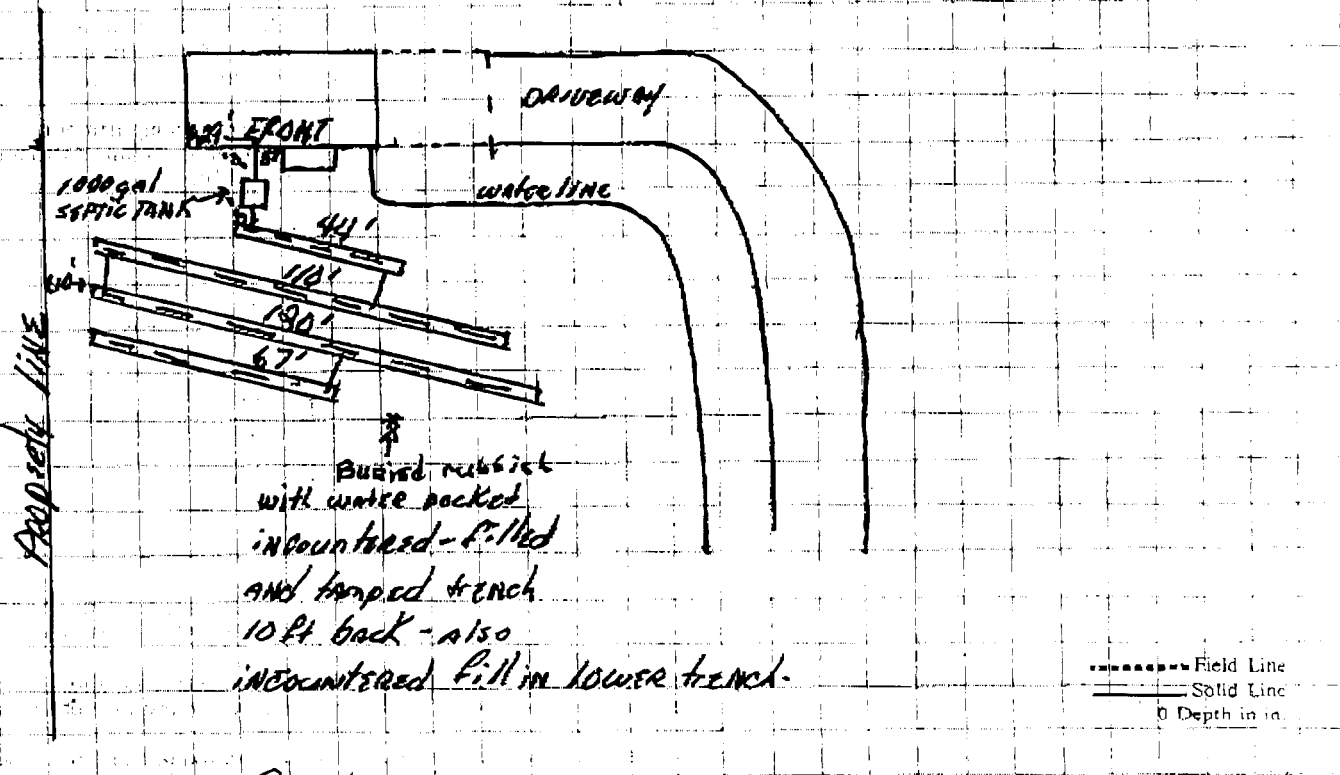 DRIVEWAY
FRONT
1000 gal
SEPTIC TANK
WATER LINE
44'
110'
67'
PROPERTY LINE
Buried rubbish
with water pocket
incountered - filled
AND tamped trench
10 ft back - also
incountered fill in LOWER trench.
Field Line
Solid Line
0 Depth in in.